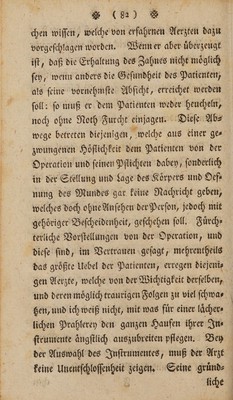 ❉ ( 82 ) ❉
chen wissen, welche von erfahrnen Aerzten dazu
vorgeschlagen worden. Wenn er aber überzeugt
ist, daß die Erhaltung des Zahnes nicht möglich
sey, wenn anders die Gesundheit des Patienten,
als seine vornehmste Absicht, erreichet werden
soll: so muß er dem Patienten weder heucheln,
noch ohne Noth Furcht einjagen. Diese Ab⸗
wege betreten diejenigen, welche aus einer ge⸗
zwungenen Höflichkeit dem Patienten von der
Operation und seinen Pflichten dabey, sonderlich
in der Stellung und Lage des Körpers und Oef⸗
nung des Mundes gar keine Nachricht geben,
welches doch ohne Ansehen der Person, jedoch mit
gehöriger Bescheidenheit, geschehen soll. Fürch⸗
terliche Vorstellungen von der Operation, und
diese sind, im Vertrauen gesagt, mehrentheils
das größte Uebel der Patienten, erregen diejeni⸗
gen Aerzte, welche von der Wichtigkeit derselben,
und deren möglich traurigen Folgen zu viel schwa⸗
tzen, und ich weiß nicht, mit was für einer lächer⸗
lichen Prahlerey den ganzen Haufen ihrer In⸗
strumente ängstlich auszubreiten pflegen. Bey
der Auswahl des Instrumentes, muß der Arzt
keine Unentschlossenheit zeigen. Seine gründ⸗
liche